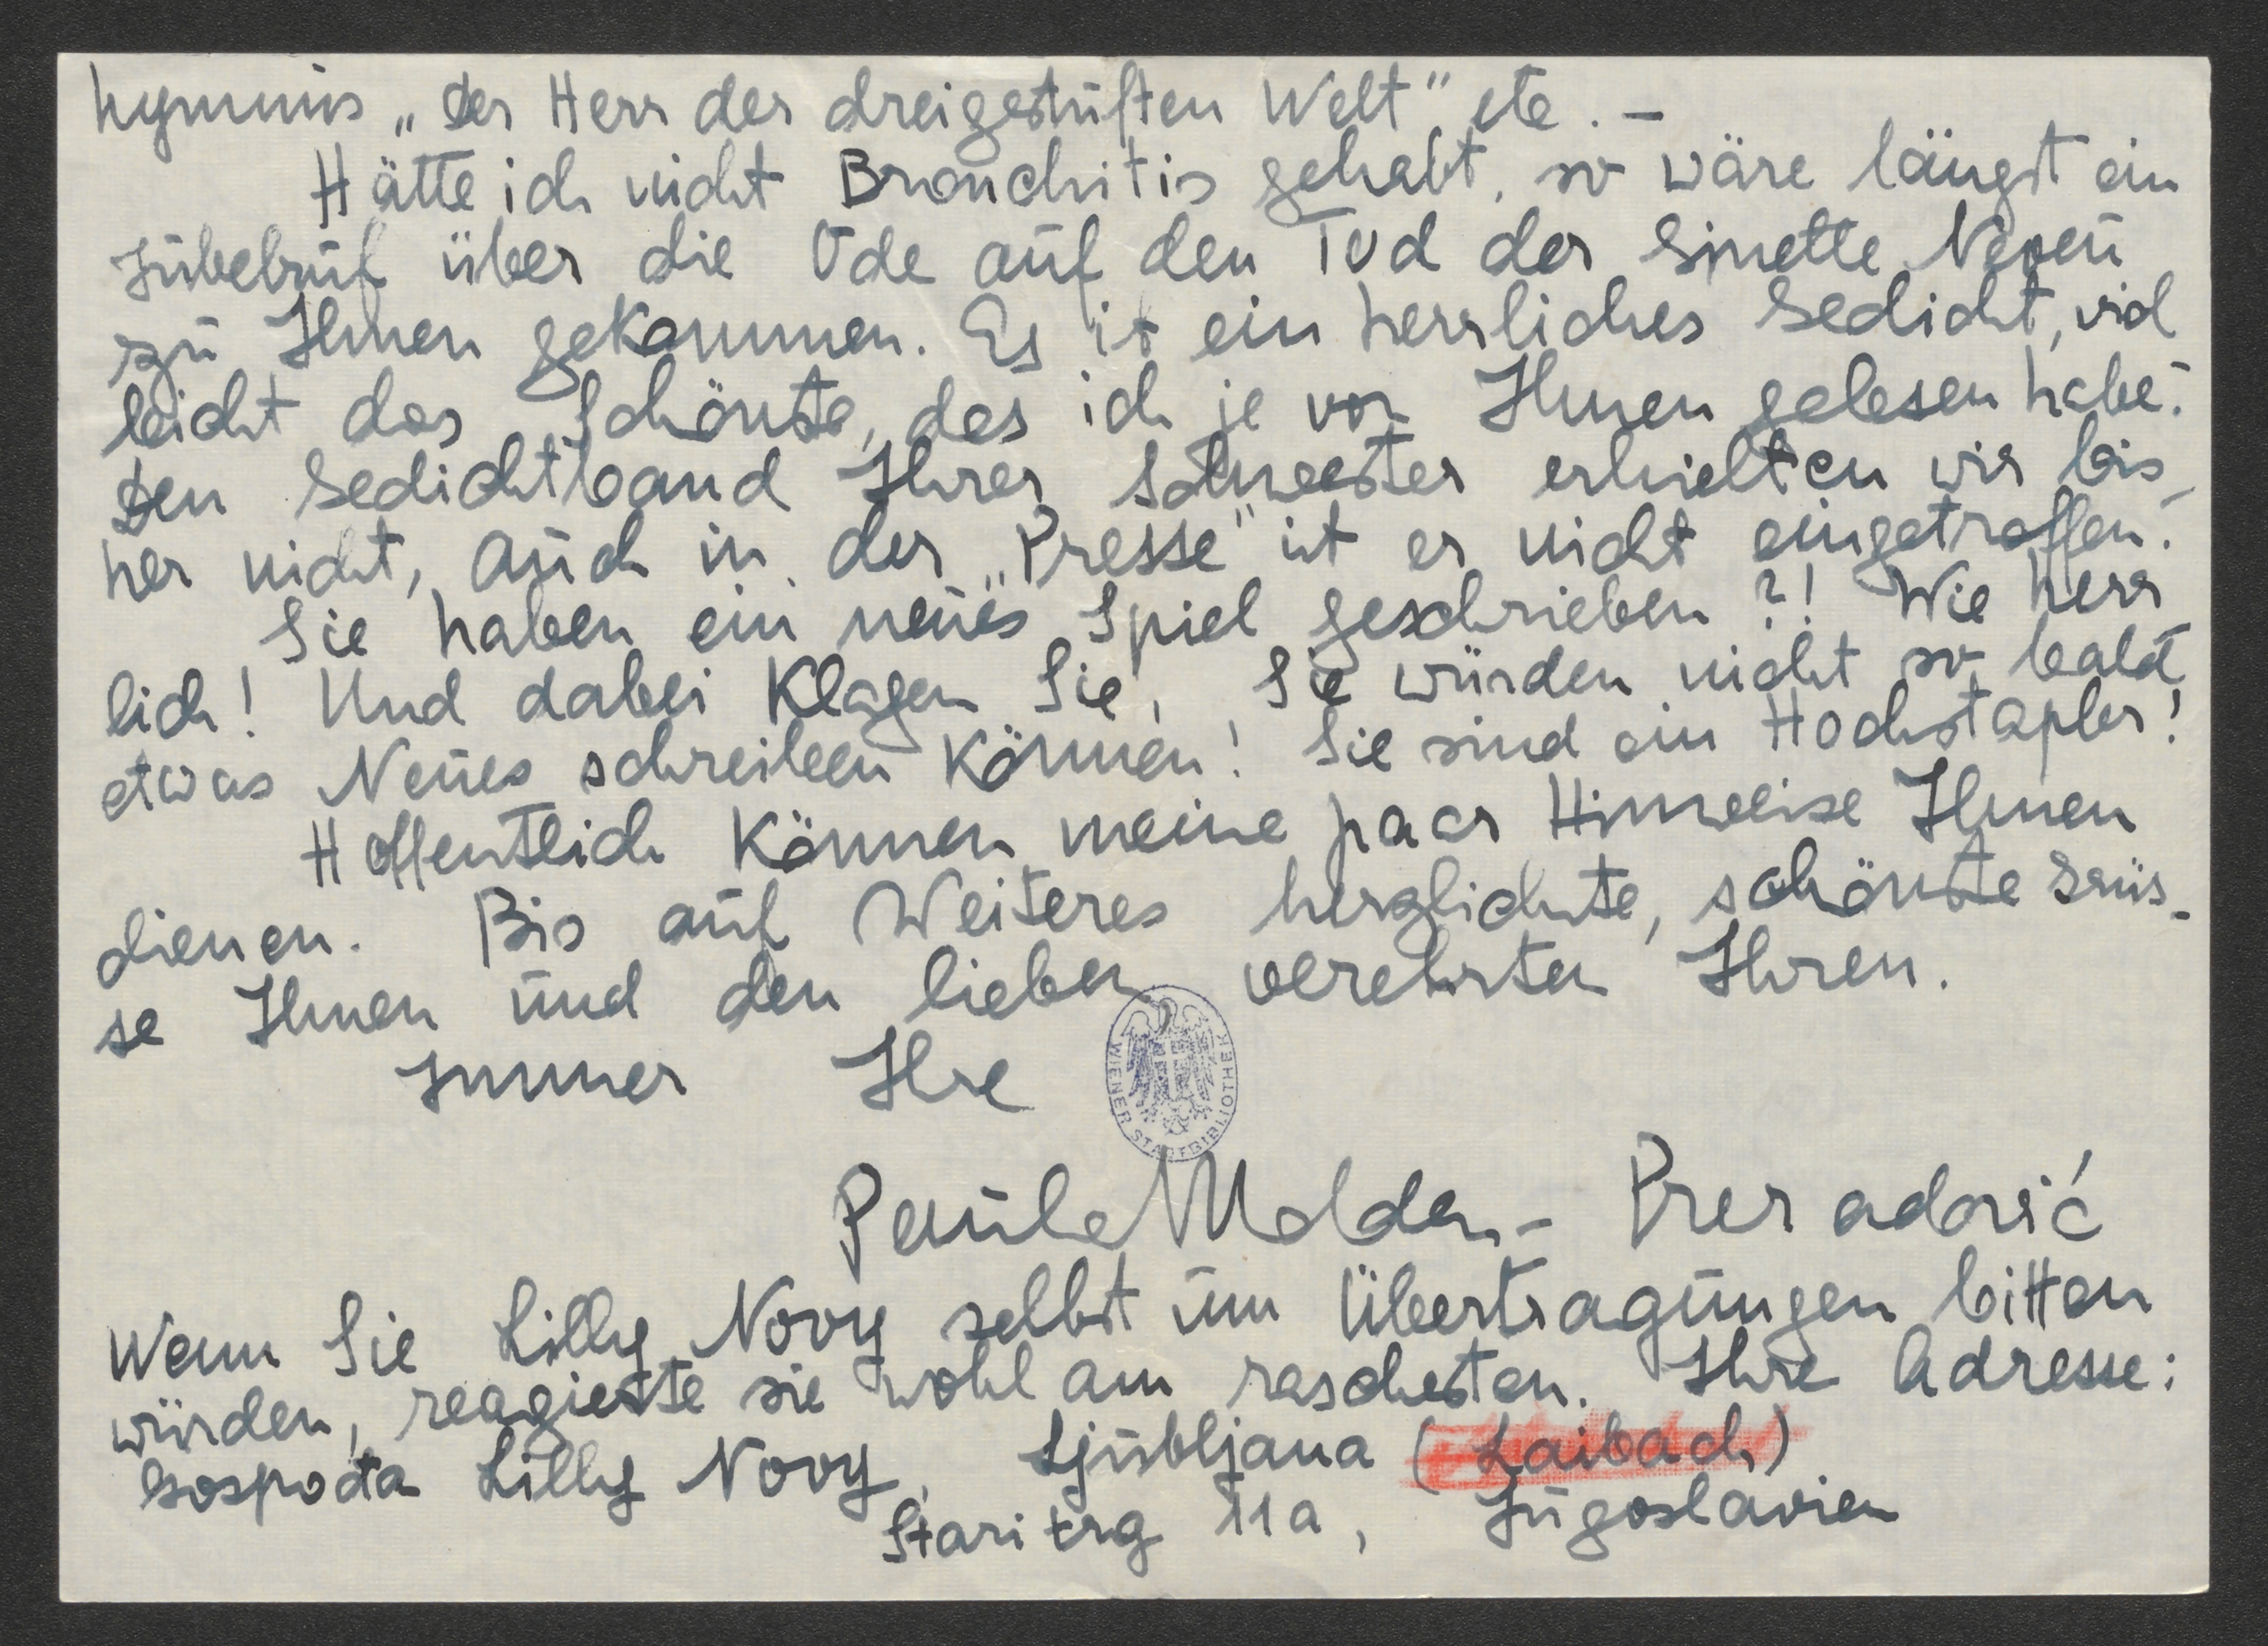 hymnus „Der Herr der dreigestuften Welt" etc. –
Hätte ich nicht Bronchitis gehabt, so wäre längst ein
Jubelruf über die Ode auf den Tod der Ginette Neveu
zu Ihnen gekommen. Es ist ein herrliches Gedicht, viel
leicht das Schönste, das ich je von Ihnen gelesen habe. –
Den Gedichtband Ihrer Schwester erhielten wir bis-
her nicht, auch in der „Presse" ist er nicht eingetroffen. –
Sie haben ein neues Spiel geschrieben?! Wie herr
lich! Und dabei klagen Sie, Sie würden nicht so bald
etwas Neues schreiben können! Sie sind ein Hochstapler!
Hoffentlich können meine paar Hinweise Ihnen
dienen. Bis auf Weiteres herzlichste, schönste Grüs-
se Ihnen und den lieben verehrten Ihren.
Immer Ihre
WIENER STADTBIBLIOTHEK
Paula Molden-Preradović
Wenn Sie Lilly Novy selbst um Übertragungen bitten
würden, reagierte sie wohl am raschesten. Ihre Adresse:
Gospođa Lilly Novy, Ljubljana (Laibach)
Stari trg 11a, Jugoslavien